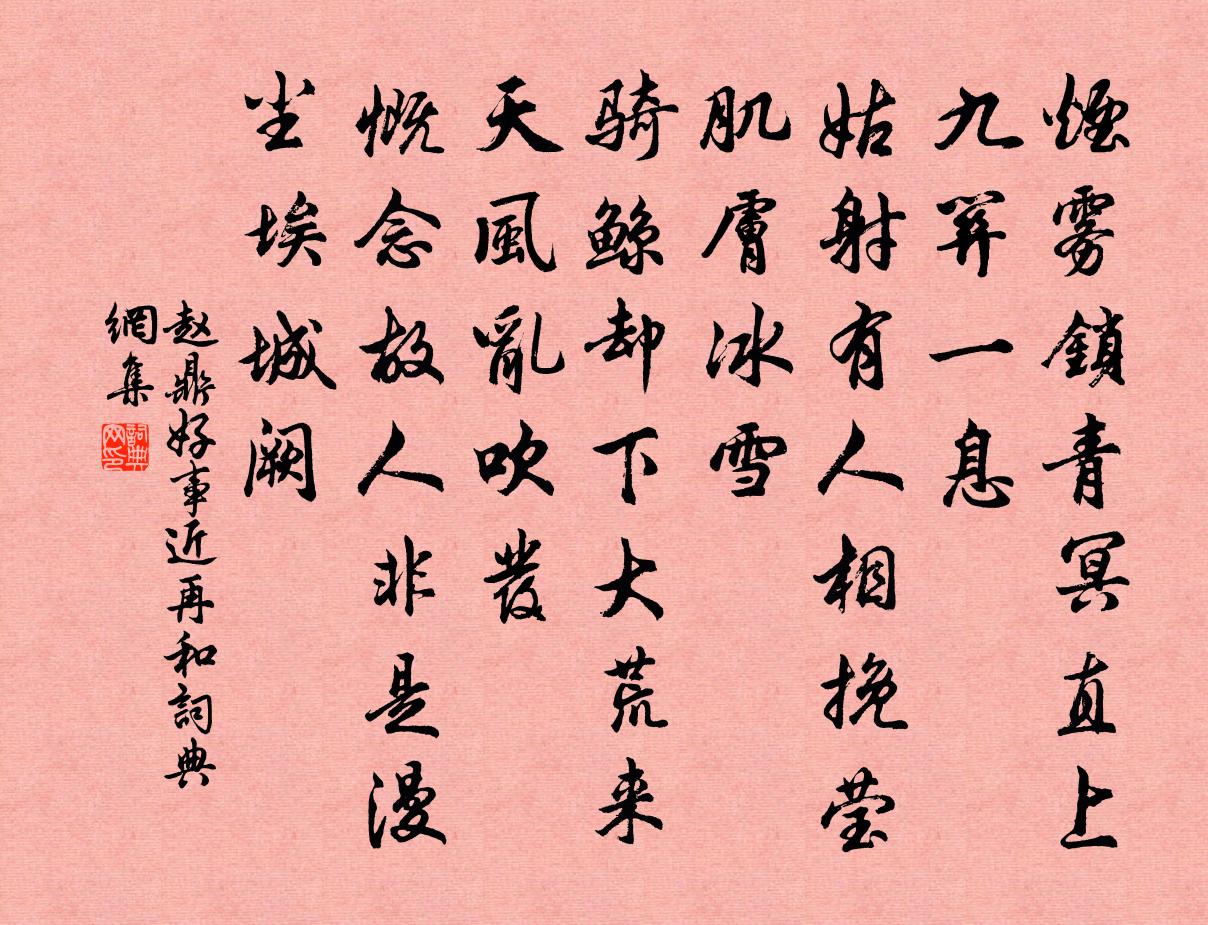 煙雾鎖青冥直上
九关一息
姑射有人相挽莹
肌膚冰雪
骑鲸却下大荒来
天風亂吹發
慨念故人非是漫
尘埃城阙
赵鼎好事近再和詞典
網集
詞典网印